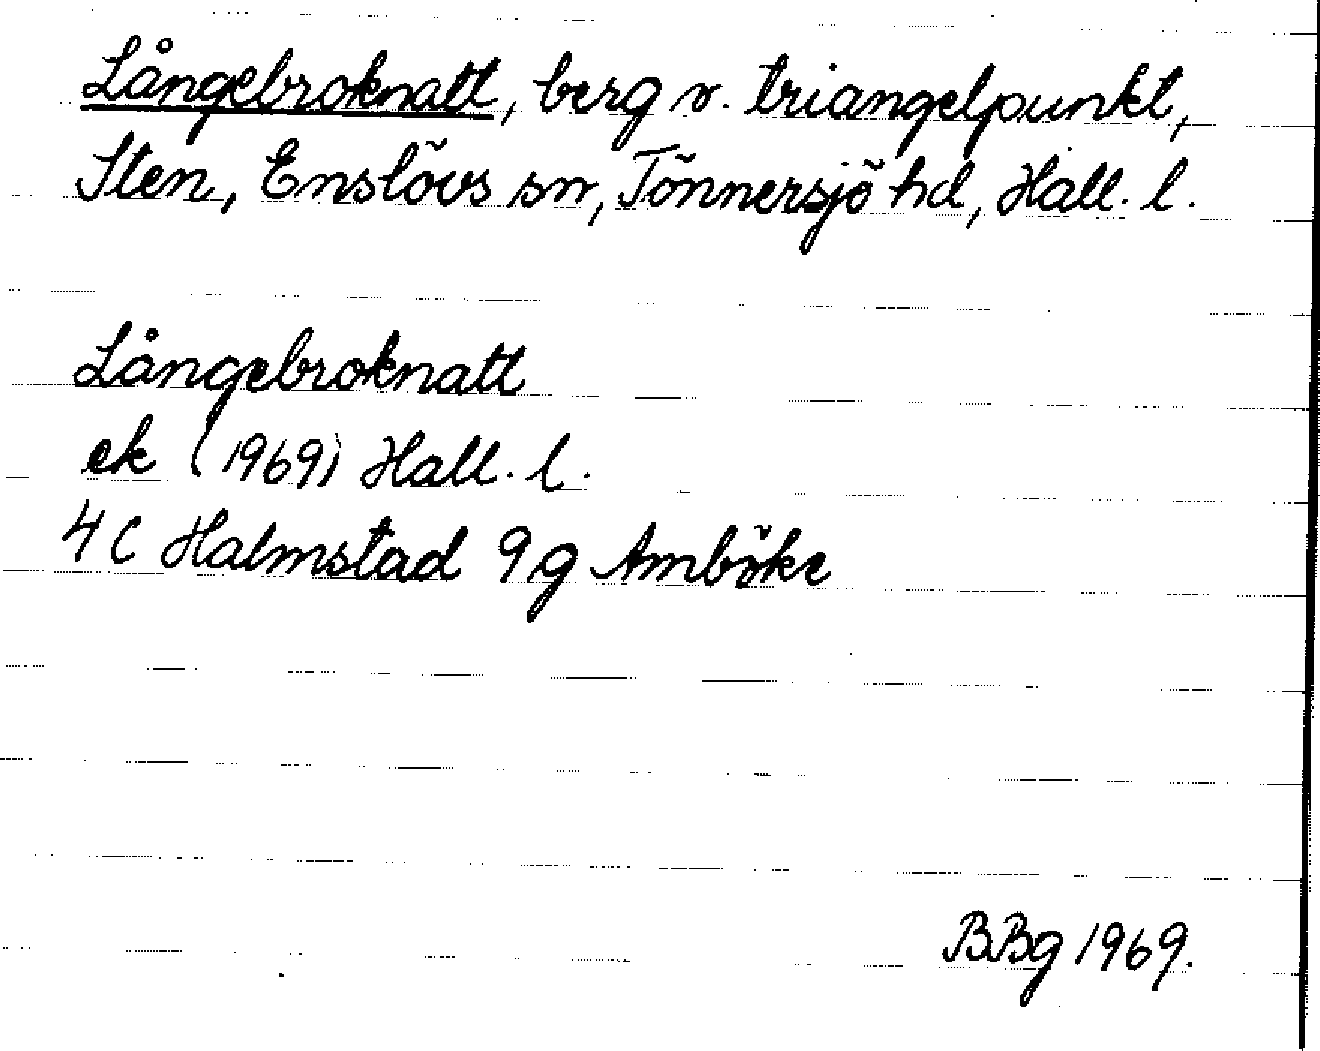 Långebroknatt, berg v. triangelpunkt,
Sten, Enslövs sn, Tönnersjö hd, Hall. l.
Långebroknatt
ek (1969) Hall. l.
4 C Halmstad 9 g Amböke
BBg 1969.